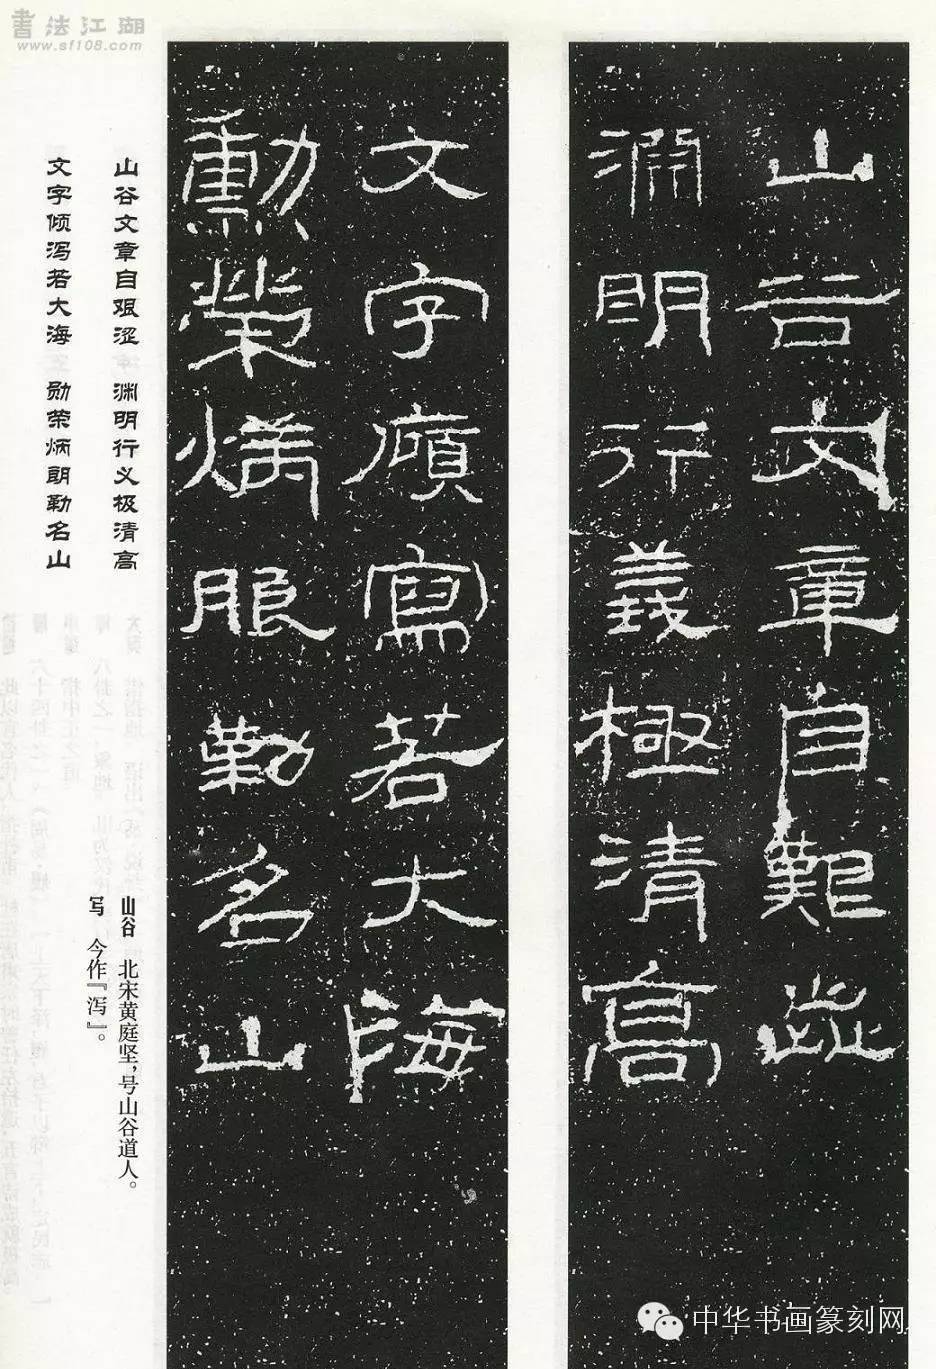 書法江湖
www.sf108.com
山谷文章自艱澁
淵明行義極清高
文字傾寫若大海
勳榮炳朗勒名山
山谷文章自艰涩 渊明行义极清高
文字倾泻若大海 勋荣炳朗勒名山
山谷 北宋黄庭坚，号山谷道人。
写 今作『泻』。
中华书画篆刻网